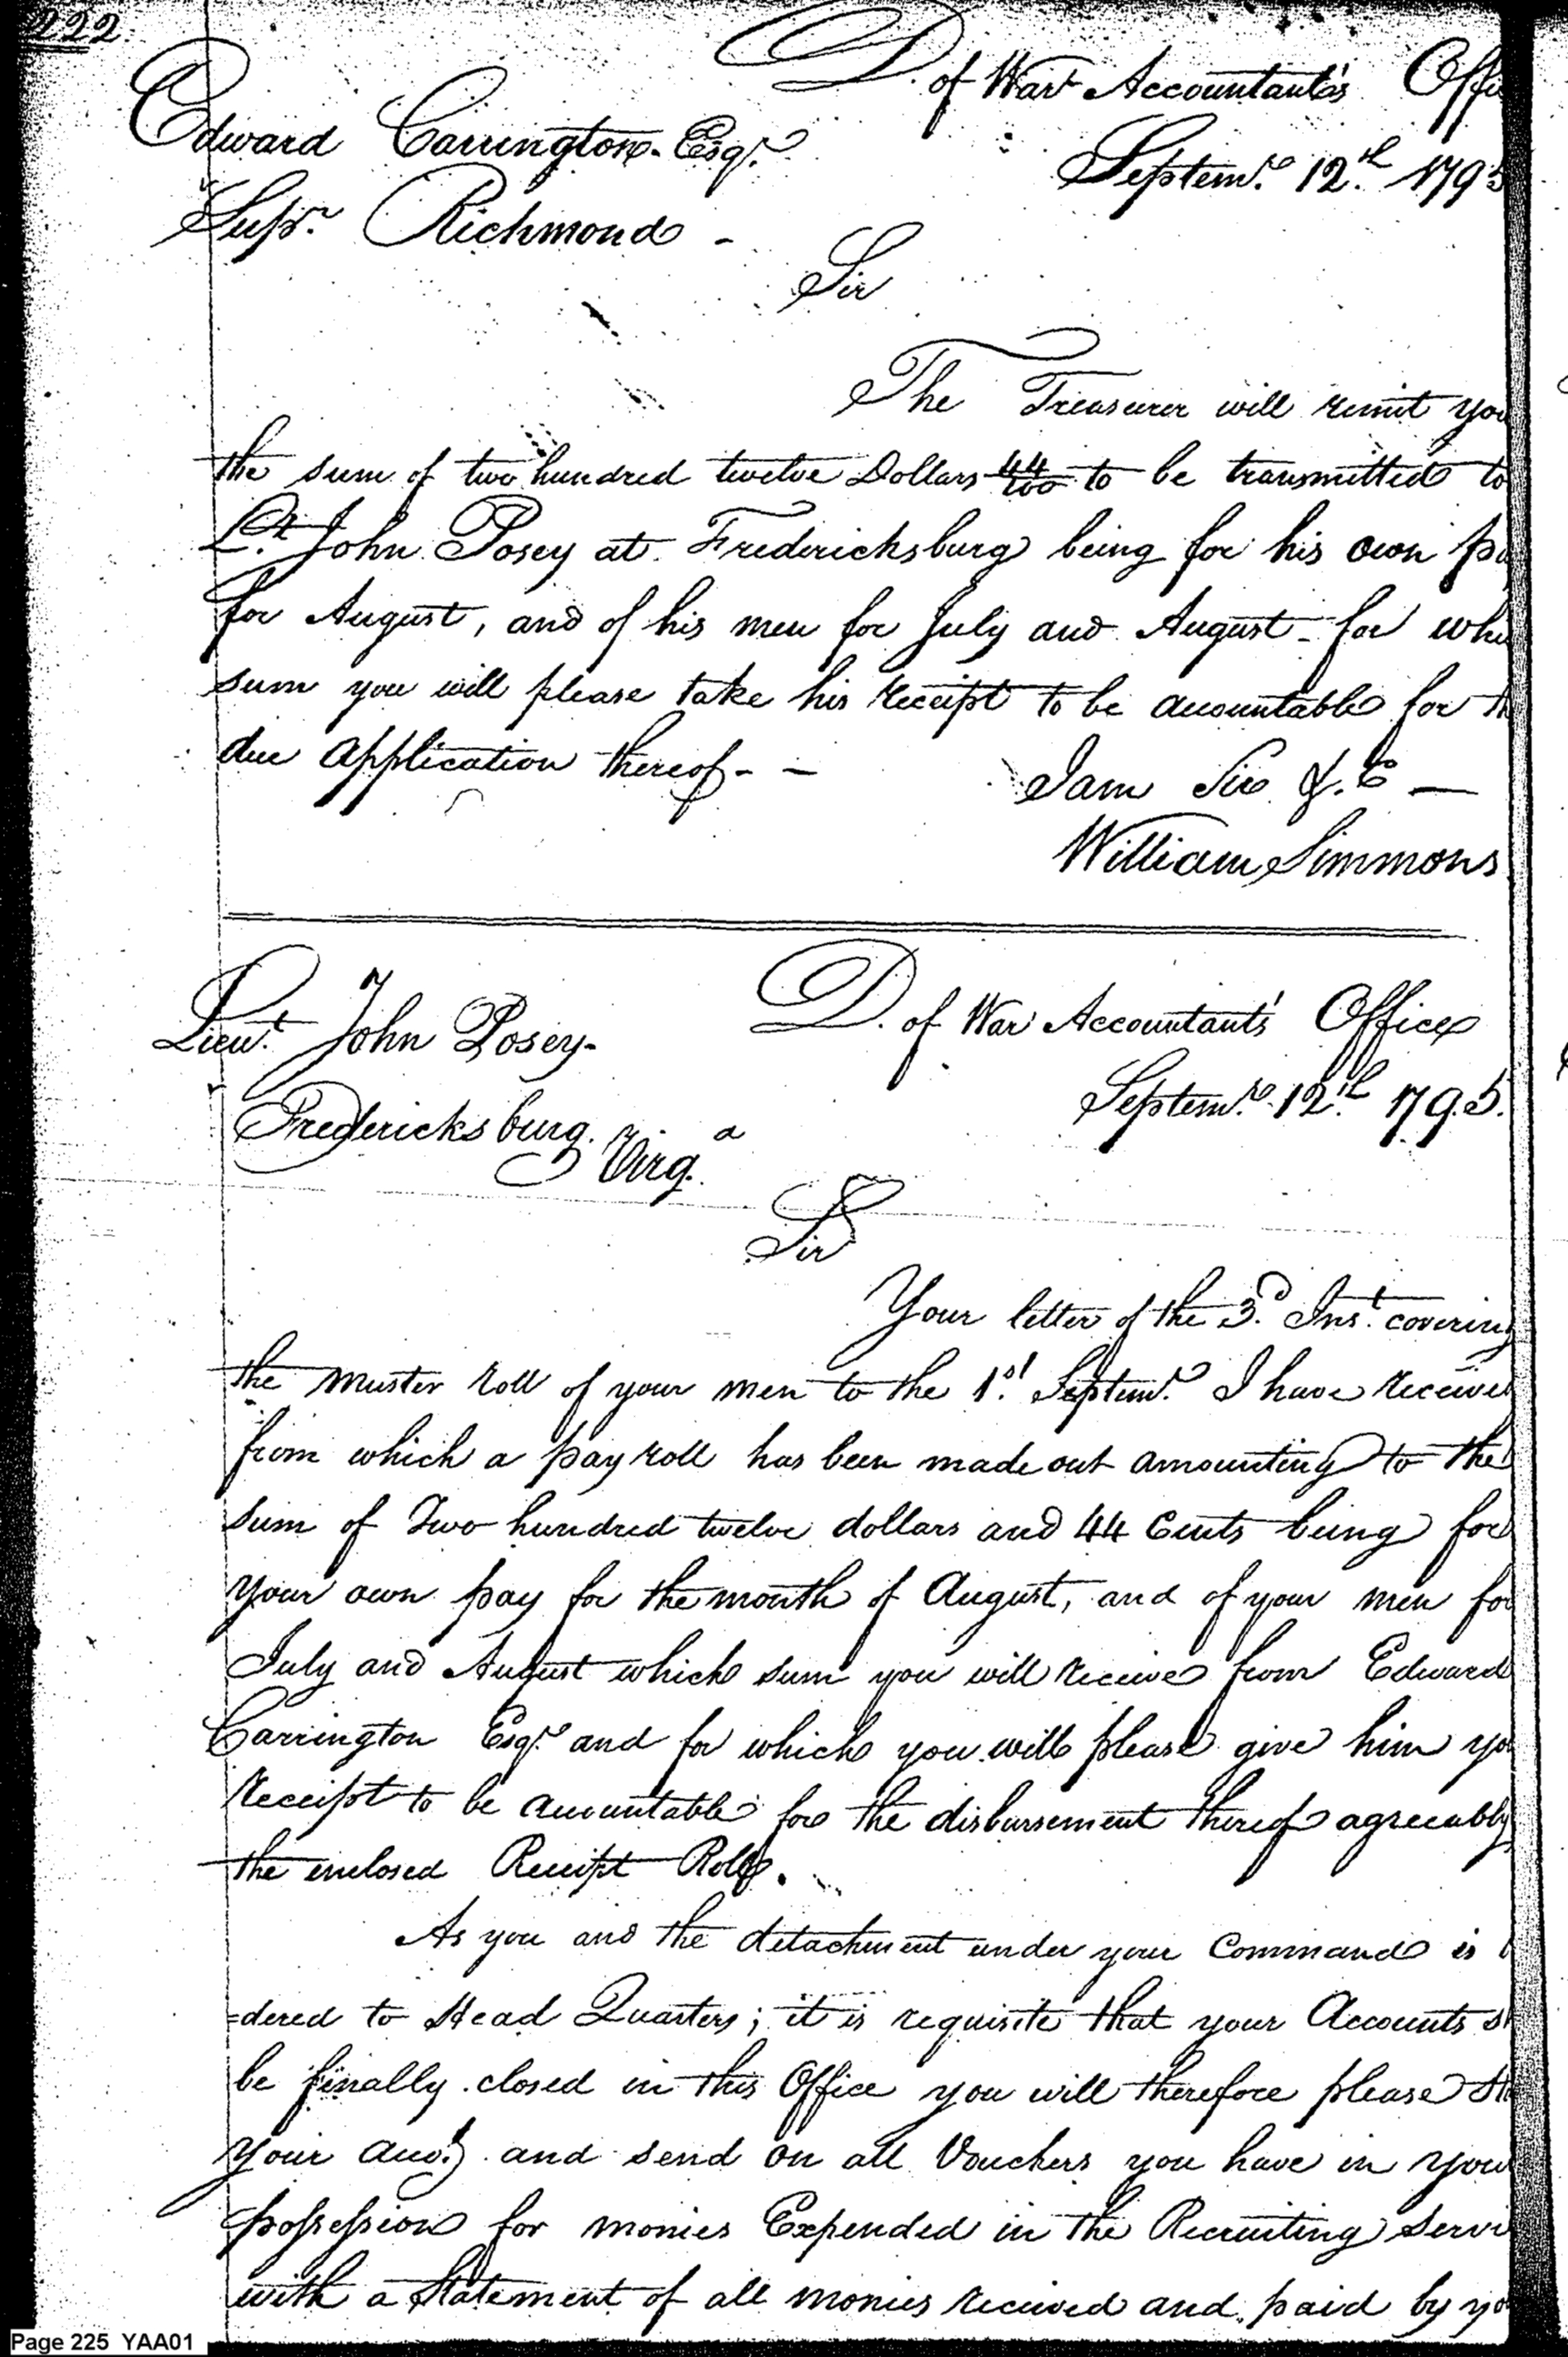 222.
D. of War Accountant's Offi
Edward Carrington Esqr.
Septemr. 12th. 1795
Supr. Richmond -
Sir
The Treasurer will remit you
the sum of two hundred twelve Dollars 44/100 to be transmitted to
Lt. John Posey at Fredericksburg being for his own pa
for August, and of his men for July and August - for whi
sum you will please take his receipt to be accountable for th
due application thereof - -
I am Sir &.C —
William Simmons
Lieut. John Posey -
D. of War Accountant's Office
Septemr. 12th. 1795.
Fredericksburg.
Virga.
Sir
Your letter of the 3d. Inst. covering
the muster roll of your men to the 1st. Septemr. I have receive
from which a pay roll has been made out amounting to the
sum of Two hundred twelve dollars and 44 Cents being for
your own pay for the month of August, and of your men for
July and August which sum you will receive from Edward
Carrington Esqr. and for which you will please give him yo
receipt to be accountable for the disbursement thereof agreeably
the enclosed Receipt Roll.
As you and the detachment under your Command is
=dered to Head Quarters; it is requisite that your Accounts sh
be finally closed in this Office you will therefore please st
your accots. and send on all Vouchers you have in your
possession for monies Expended in the Recruiting Servi
with a Statement of all monies received and paid by yo
Page 225 YAA01